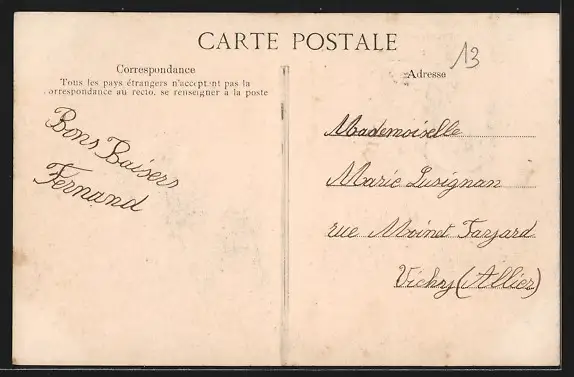 CARTE POSTALE
13
Correspondance
Tous les pays étrangers n'acceptent pas la
correspondance au recto, se renseigner à la poste
Adresse
Bons Baisers
Fernand
Mademoiselle
Marie Lusignan
rue Moinet Farjard
Vichy (Allier)